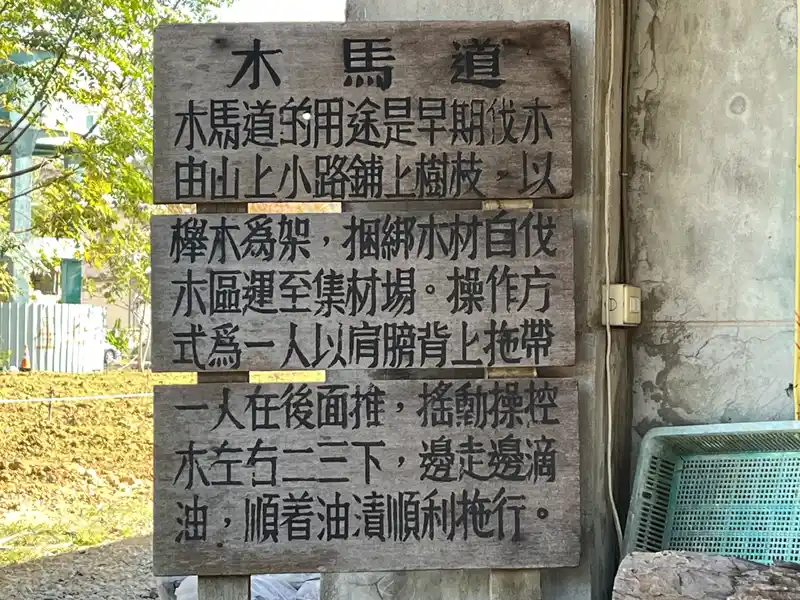 木馬道
木馬道的用途是早期伐木
由山上小路鋪上樹枝，以
櫸木爲架，捆綁木材自伐
木區運至集材場。操作方
式爲一人以肩膀背上拖帶
一人在後面推，搖動操控
木左右二三下，邊走邊滴
油，順着油漬順利拖行。